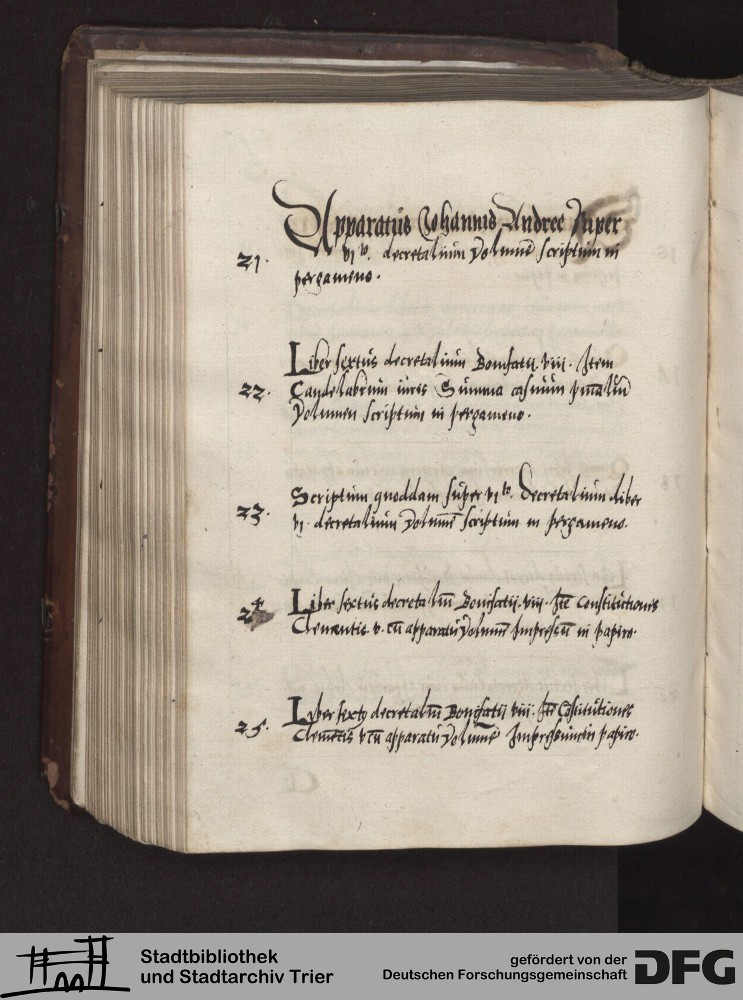 Apparatus Johannis Andree super
21. vi to. decretalium Volumē scriptum in
pergameno.
Liber sextus decretalium Bonifatii. viii. Item
22. Candelabrum iuris Summa casuum
Volumen scriptum in pergameno.
Scriptum quoddam super vi to. Decretalium liber
23. vi. decretalium Volumē scriptum in pergameno.
24 Liber sextus decretaliū Bonifatii. viii. Itē Constitutiones
Clementis. v. cū apparatu Volumē Impressū in papiro.
25. Lyber sextꝰ decretaliū Bonifatii viii. Itē Cōstitutiones
Clemētis v cū apparatu Volumē Impressum in papiro.
Stadtbibliothek
und Stadtarchiv Trier
gefördert von der
Deutschen Forschungsgemeinschaft DFG